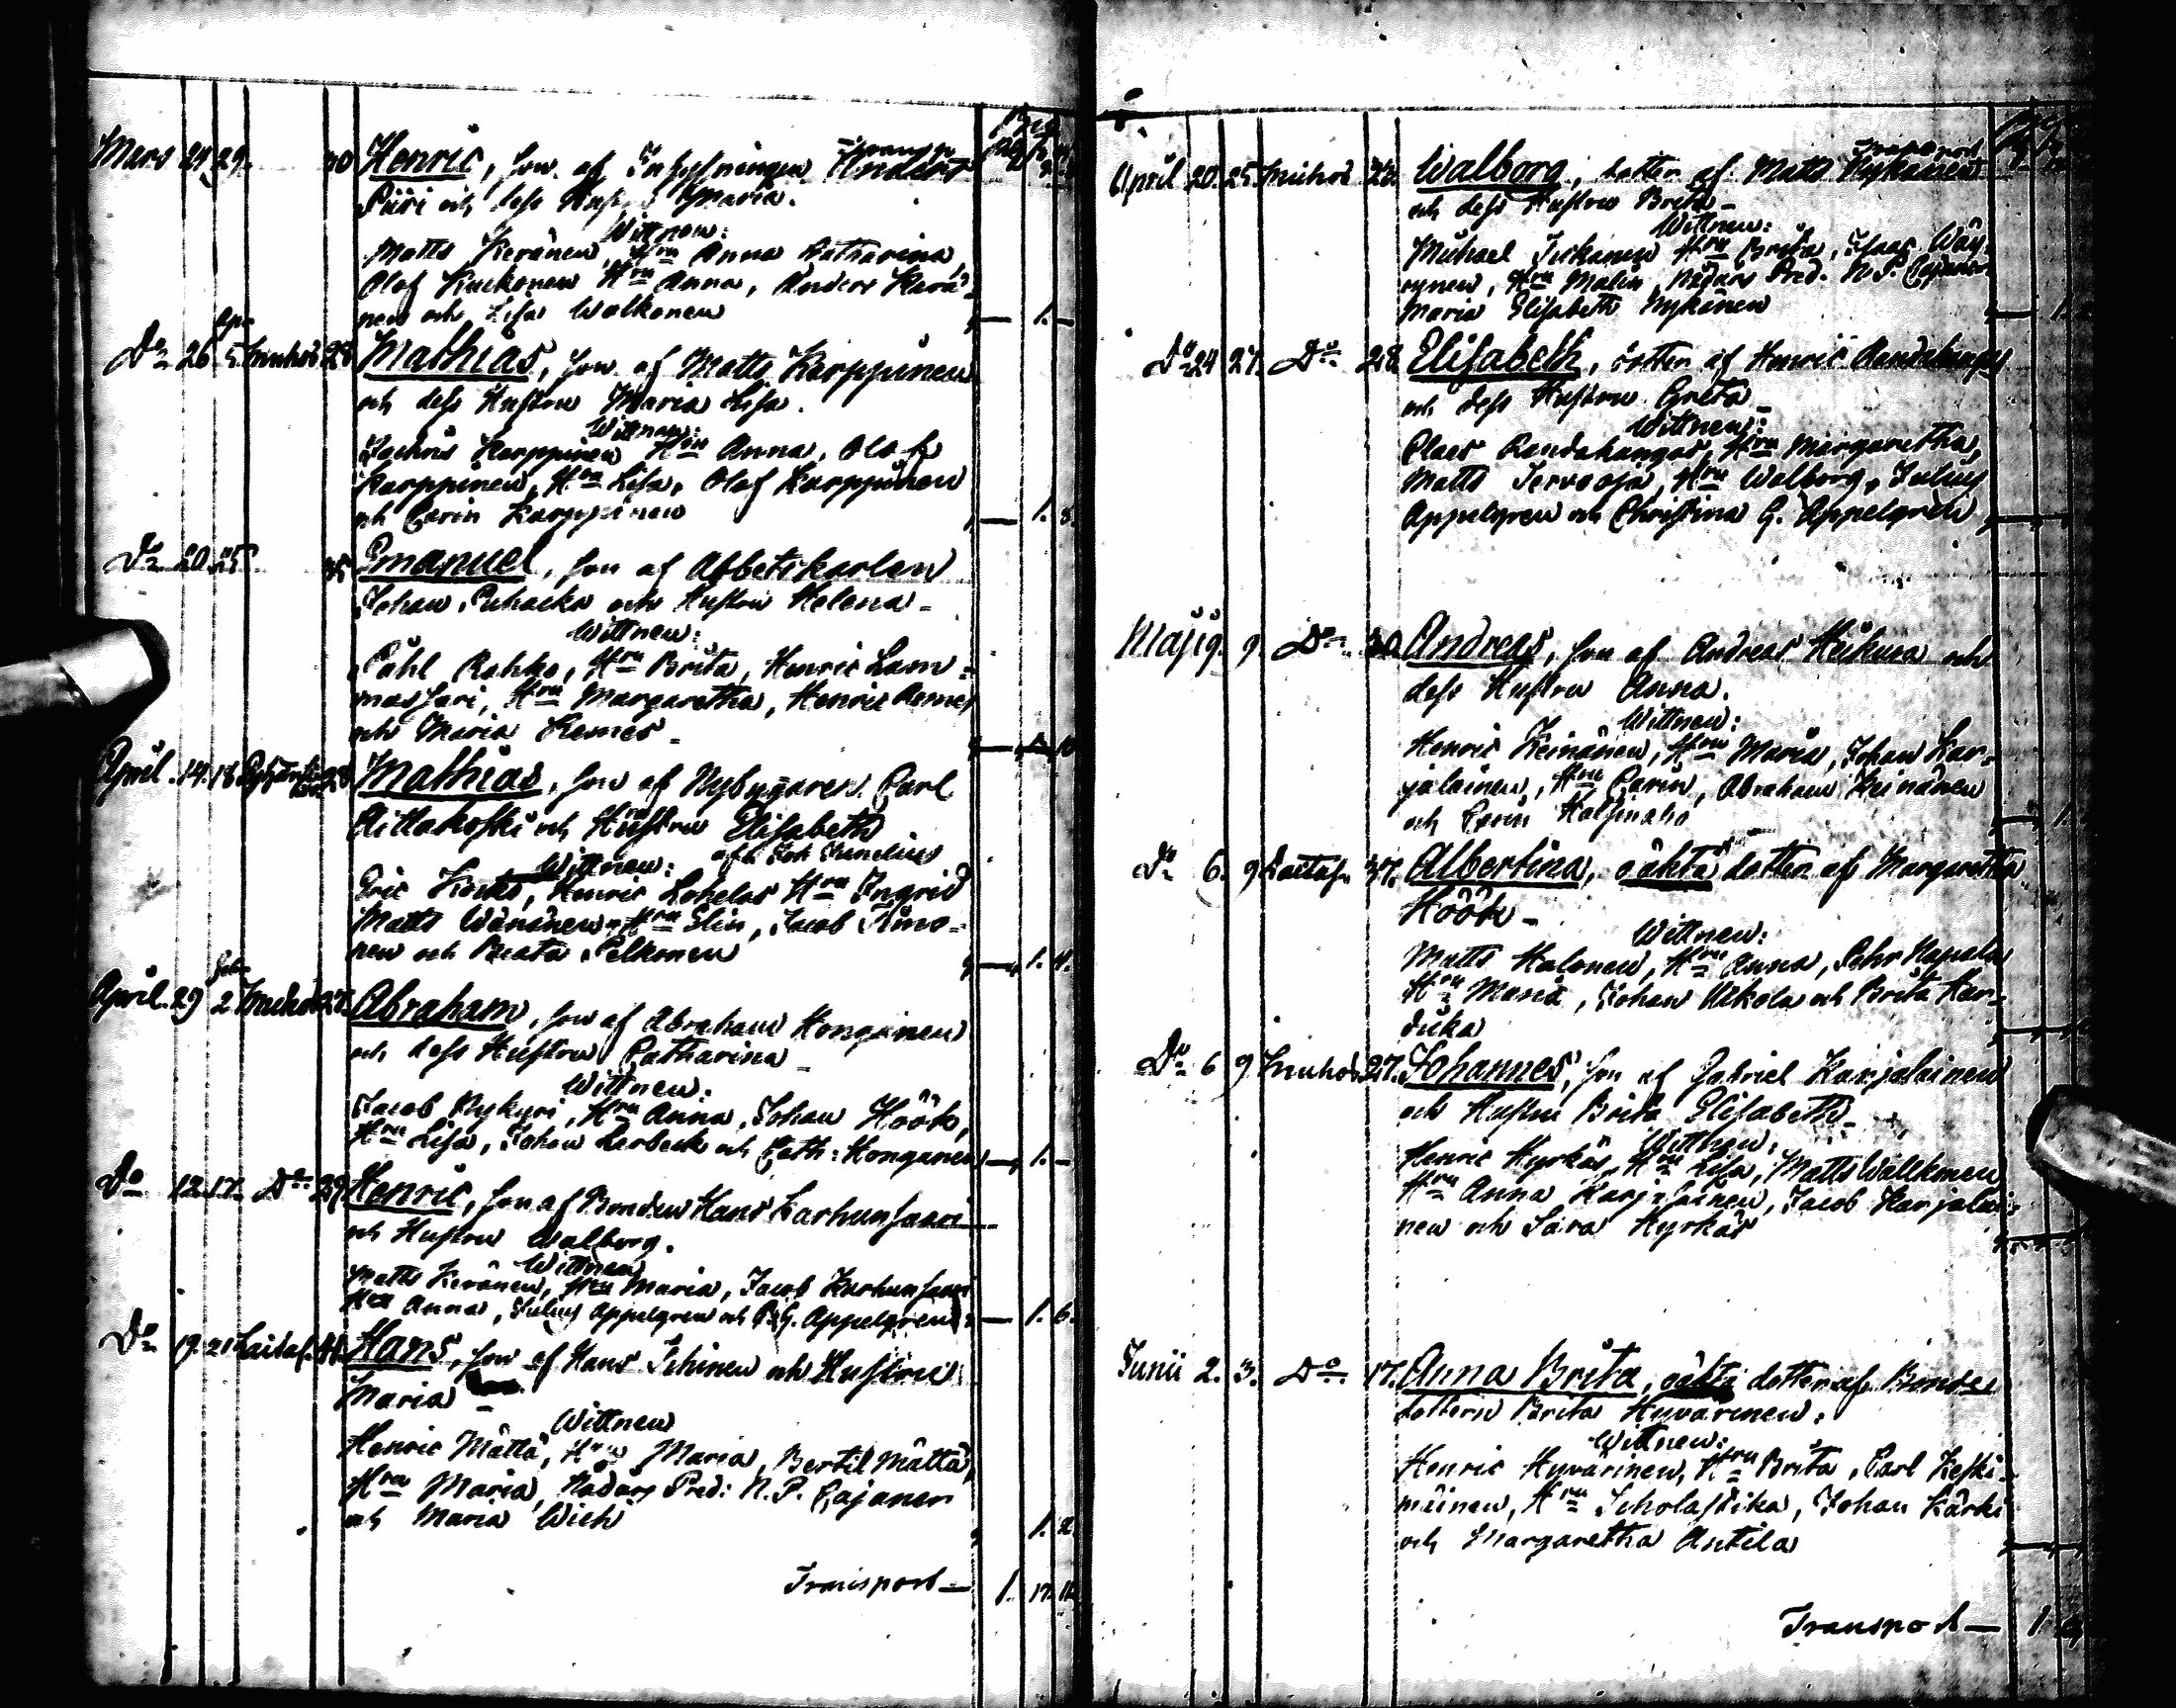 Mars 24. 29. 30 Henric, son af Inhysningen Anders
Piiri och dess Hustru Maria.
Wittnen:
Matts Keränen, Hru Anna Catharina,
Olof Kuckonen Hru Anna, Anders Kerä=
nen och Lisa Walkonen 1. —
Do 26 Apr. 5. Smuhos 28 Mathias, son af Matts Karppinen
och dess Hustru Maria Lisa.
Wittnen:
Karppinen Hru Anna, Olof
Karppinen, Hru Lisa, Olof Karppinen
och Carin Karppinen 1. 8.
Do 20. 25 35 Emanuel, son af Arbetskarlen
Johan Puhacka och Hustru Helena —
Wittnen:
Påhl Rahko, Hru Brita, Henric Lam=
massari, Hru Margaretha, Henric Remes
och Maria Remes —
April. 14. 18 28 Mathias, son af Nybyggaren Carl
Aittokoski och Hustru Elisabeth
Wittnen: afl. Joh. Junelius
Eric Hru Ingrid
Matts Wänänen, Hru Elin, Jacob Kino=
nen och Beata Pelkonen 1. 4.
April. 29 2 Smuhos 27. Abraham, son af Abraham Honganen
och dess Hustru Catharina —
Wittnen:
Jacob Nykyri, Hru Anna, Johan Höök,
Hru Lisa, Johan Lerbeck och Cath: Honganen 1. —
Do 12. 17. Do 29 Henric, son af Bonden Hans Karhunsaari
och Hustru Walborg.
Wittnen
Matts Keränen, Hru Maria, Jacob Karhunsaari
Hru Anna, Julius Appelgren och C. G. Appelgren 1. 6.
Do 19. 21 Hans, son af Hans Tihinen och Hustru
Maria —
Wittnen
Henric Mättä, Hru Maria, Bertil Mättä,
Hru Maria, Nådårs Pred: N. P. Cajaner
och Maria Wich 1. 2.
Transport — 1. 17. 11
Transport
April 20. 25. Smuhos 28. Walborg, dotter af Matts Nykänen
och dess Hustru Brita —
Wittnen:
Michael Hru Brita, Isaac Wäy=
rynen, Hru Malin, Nådårs Pred. N. P. Cajaner
Maria Elisabeth Nykänen
Do 24 27. Do 28. Elisabeth, dotter af Henric Randahangas
och dess Hustru Greta —
Wittnen:
Claes Randahangas, Hru Margaretha,
Matts Servooja, Hru Walborg, Julius
Appelgren och Christina G. Appelgren
Maji 9. 9. Do 30 Andreas, son af Andreas Heikura och
dess Hustru Anna.
Wittnen:
Henric Keinänen, Hru Maria, Johan Kar=
jalainen, Hru Carin, Abraham Keinänen
och Carin Halsinaho
Do 6. 9 37. Albertina, oäkta dotter af Margaretha
Höök —
Wittnen:
Matts Halonen, Hru Anna, Pehr Hapala
Hru Maria, Johan Ukkola och Brita Kar=
duka
Do 6 9 Smuhos. 27. Johannes, son af Gabriel Karjalainen
och Hustru Brita Elisabeth —
Wittnen:
Henric Hyrkäs, Hru Lisa, Matts Walckonen
Hru Anna Karjalainen, Jacob Karjalai=
nen och Sara Hyrkäs
Junii 2. 3. Do 17. Anna Brita, oäkta dotter af Bonde=
dottern Brita Hyvärinen.
Wittnen:
Henric Hyvärinen, Hru Brita, Carl Keski=
mäinen, Hru Scholastika, Johan Kärki
och Margaretha Antila
Transport — 1